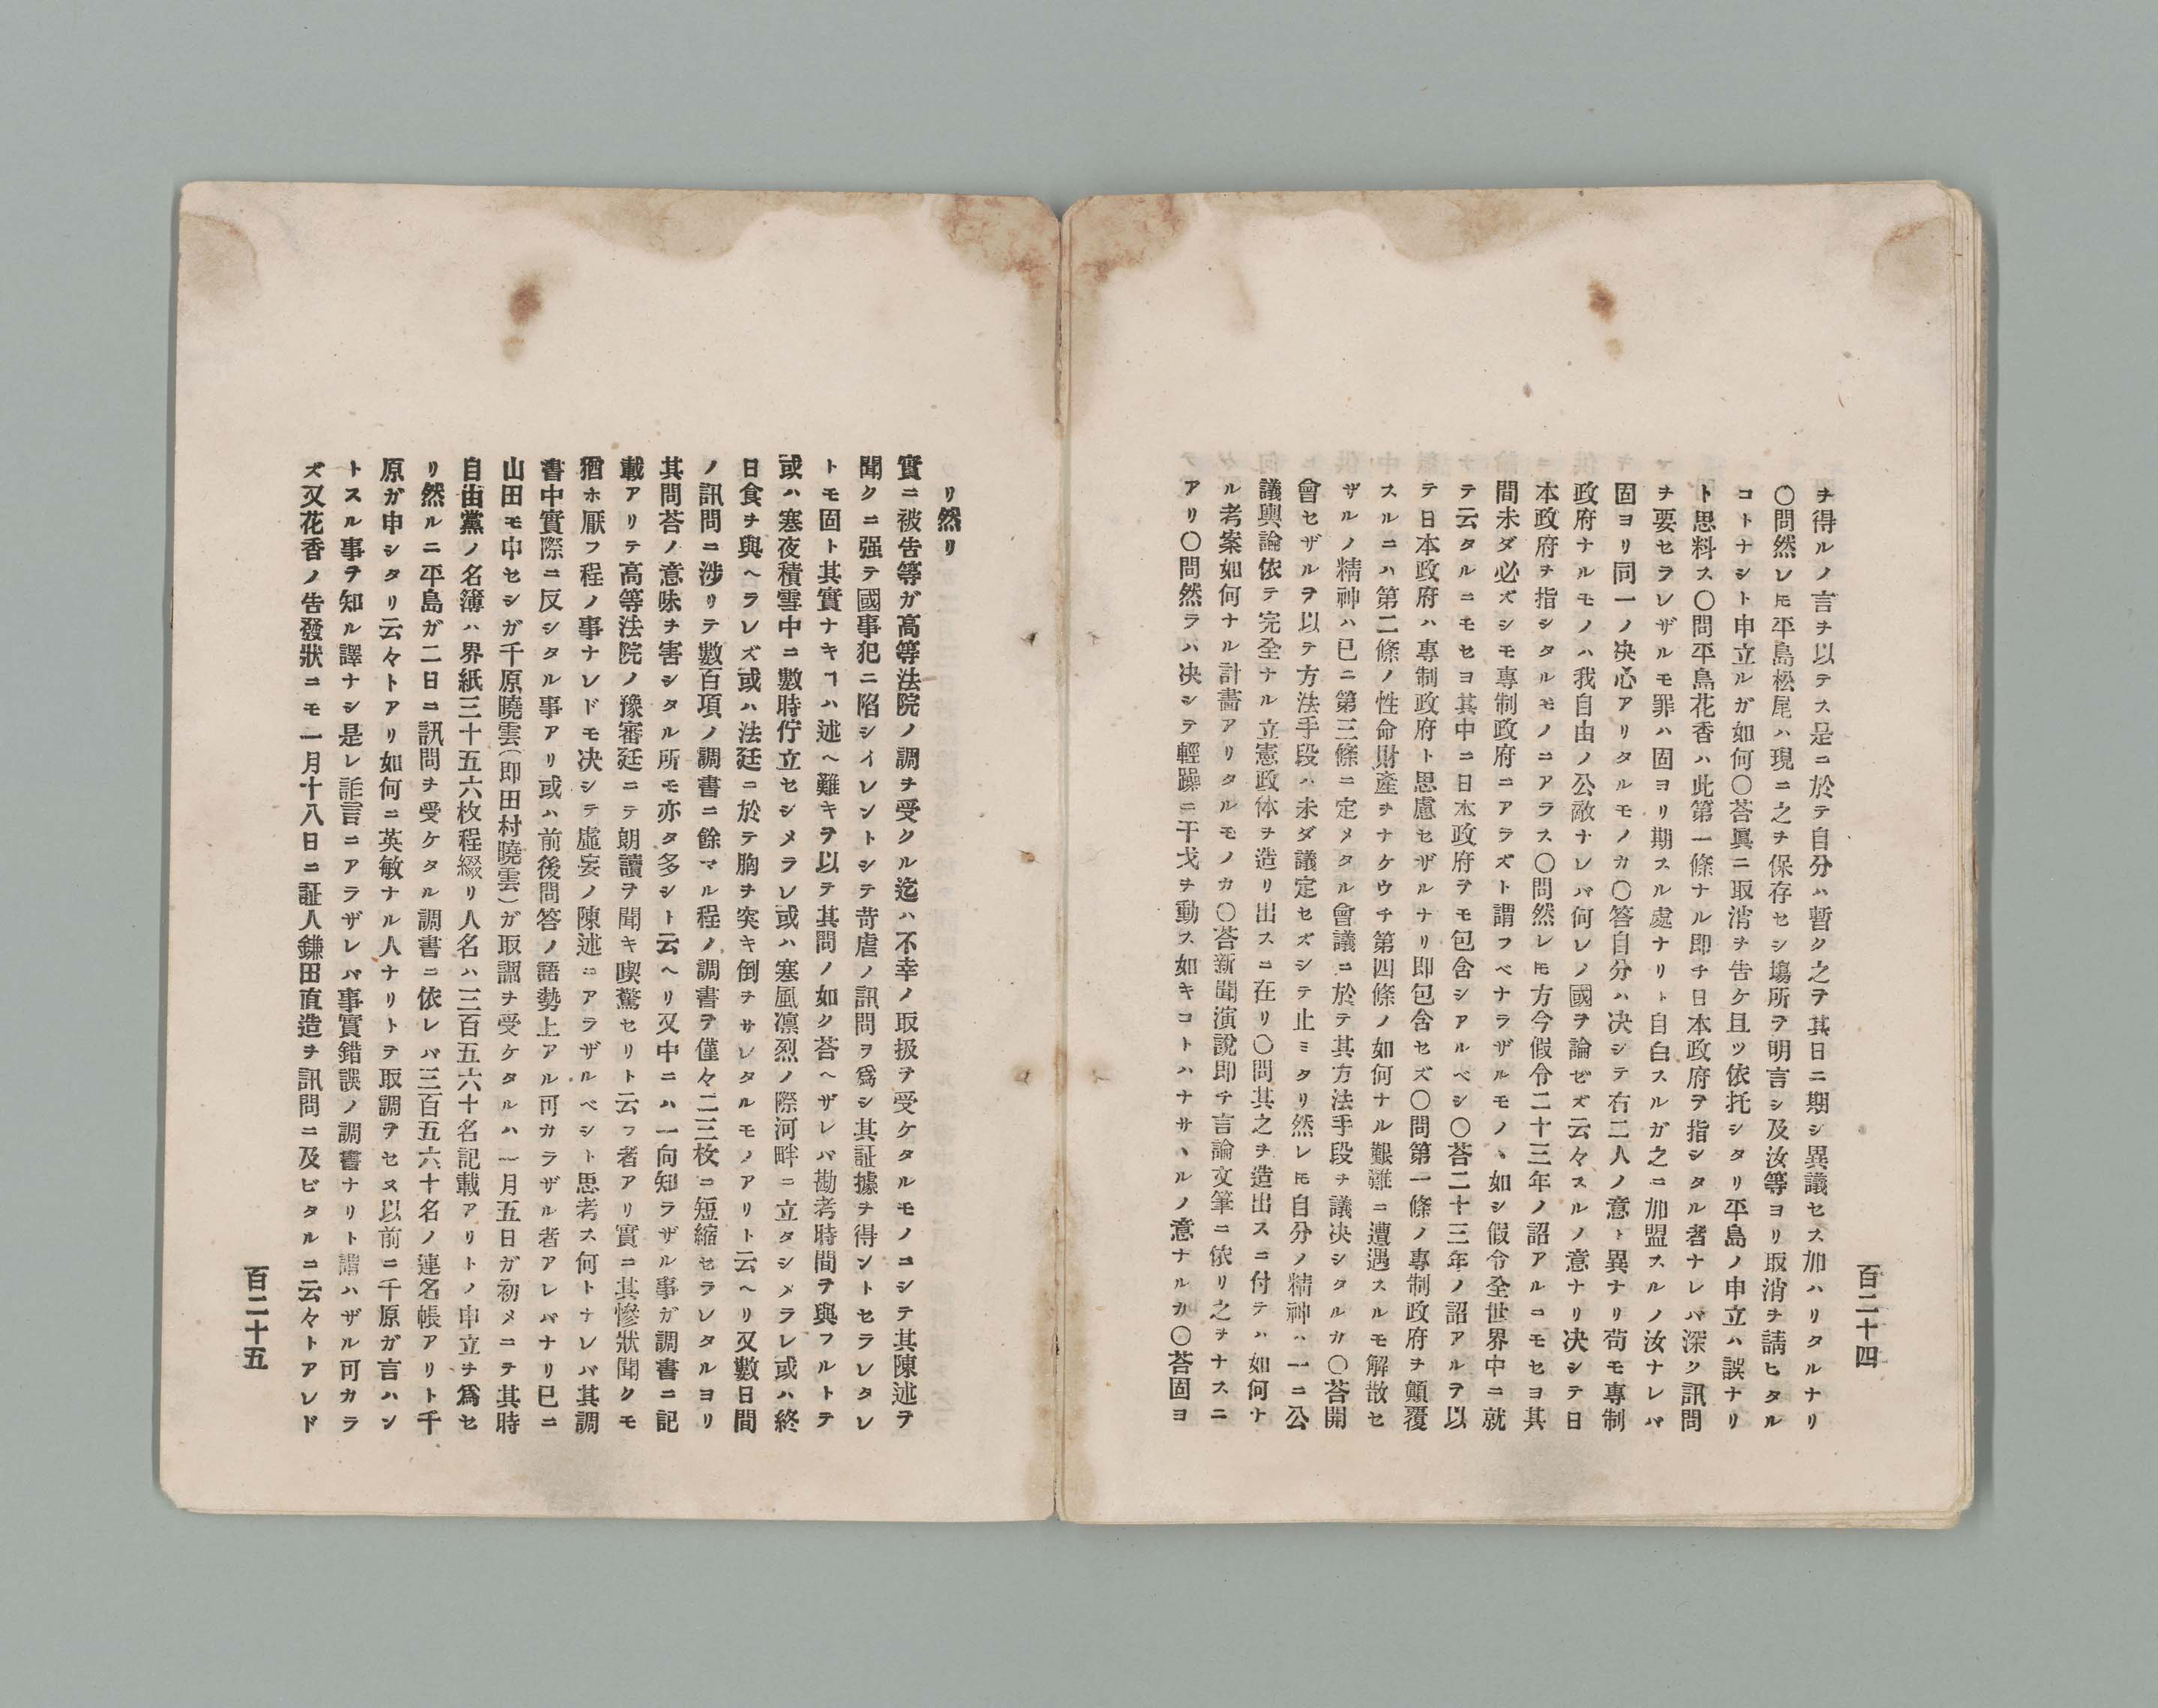 百二十四
ヲ得ルノ言ヲ以テス是ニ於テ自分ハ暫ク之ヲ其日ニ期シ異議セス加ハリタルナリ
〇問然レ𪜈平島松尾ハ現ニ之ヲ保存セシ塲所ヲ明言シ及汝等ヨリ取消ヲ請ヒタル
コトナシト申立ルガ如何〇荅眞ニ取消ヲ告ケ且ツ依托シタリ平島ノ申立ハ誤ナリ
ト思料ス〇問平島花香ハ此第一條ナル即チ日本政府ヲ指シタル者ナレバ深ク訊問
ヲ要セラレザルモ罪ハ固ヨリ期スル處ナリト自白スルガ之ニ加盟スルノ汝ナレバ
固ヨリ同一ノ决心アリタルモノカ〇答自分ハ决シテ右二人ノ意ト異ナリ苟モ專制
政府ナルモノハ我自由ノ公敵ナレバ何レノ國ヲ論ゼズ云々スルノ意ナリ决シテ日
本政府ヲ指シタルモノニアラス〇問然レ𪜈方今假令二十三年ノ詔アルニモセヨ其
間未ダ必ズシモ專制政府ニアラズト謂フベナラザルモノヽ如シ假令全世界中ニ就
テ云タルニモセヨ其中ニ日本政府ヲモ包含シアルベシ〇荅二十三年ノ詔アルヲ以
テ日本政府ハ專制政府ト思慮セザルナリ即包含セズ〇問第一條ノ專制政府ヲ顛覆
スルニハ第二條ノ性命財產ヲナケウチ第四條ノ如何ナル艱難ニ遭遇スルモ解散セ
ザルノ精神ハ已ニ第三條ニ定メタル會議ニ於テ其方法手段ヲ議决シタルカ〇荅開
會セザルヲ以テ方法手段ハ未ダ議定セズシテ止ミタリ然レ𪜈自分ノ精神ハ一ニ公
議輿論依テ完全ナル立憲政体ヲ造リ出スニ在リ〇問其之ヲ造出スニ付テハ如何ナ
ル考案如何ナル計畵アリタルモノカ〇荅新聞演說即チ言論文筆ニ依リ之ヲナスニ
アリ〇問然ラハ决シテ輕躁ニ干戈ヲ動ス如キコトハナサヽルノ意ナルカ〇荅固ヨ
リ然リ
實ニ被告等ガ高等法院ノ調ヲ受クル迄ハ不幸ノ取扱ヲ受ケタルモノコシテ其陳述ヲ
聞クニ强テ國事犯ニ陷シイレントシテ苛虐ノ訊問ヲ爲シ其証據ヲ得ントセラレタレ
トモ固ト其實ナキヿハ述ヘ難キヲ以テ其問ノ如ク荅ヘザレバ勘考時間ヲ與フルトテ
或ハ寒夜積雪中ニ數時佇立セシメラレ或ハ寒風凛烈ノ際河畔ニ立タシメラレ或ハ終
日食ヲ與ヘラレズ或ハ法廷ニ於テ胸ヲ突キ倒ヲサレタルモノアリト云ヘリ又數日間
ノ訊問ニ涉リテ數百項ノ調書ニ餘マル程ノ調書ヲ僅々二三枚コ短縮セラレタルヨリ
其問荅ノ意味ヲ害シタル所モ亦タ多シト云ヘリ又中ニハ一向知ラザル事ガ調書ニ記
載アリテ高等法院ノ豫審廷ニテ朗讀ヲ聞キ喫驚セリト云フ者アリ實ニ其慘狀聞クモ
猶ホ厭フ程ノ事ナレドモ决シテ虛妄ノ陳述ニアラザルベシト思考ス何トナレバ其調
書中實際ニ反シタル事アリ或ハ前後問答ノ語勢上アル可カラザル者アレバナリ已ニ
山田モ申セシガ千原曉雲(即田村曉雲)ガ取調ヲ受ケタルハ一月五日ガ初メニテ其時
自由黨ノ名簿ハ界紙三十五六枚程綴リ人名ハ三百五六十名記載アリトノ申立ヲ爲セ
リ然ルニ平島ガ二日ニ訊問ヲ受ケタル調書ニ依レバ三百五六十名ノ連名帳アリト千
原ガ申シタリ云々トアリ如何ニ英敏ナル人ナリトテ取調ヲセヌ以前ニ千原ガ言ハン
トスル事ヲ知ル譯ナシ是レ詐言ニアラザレバ事實錯誤ノ調書ナリト謂ハザル可カラ
ズ又花香ノ告發狀ニモ一月十八日ニ証人鎌田直造ヲ訊問ニ及ビタルニ云々トアレド
百二十五